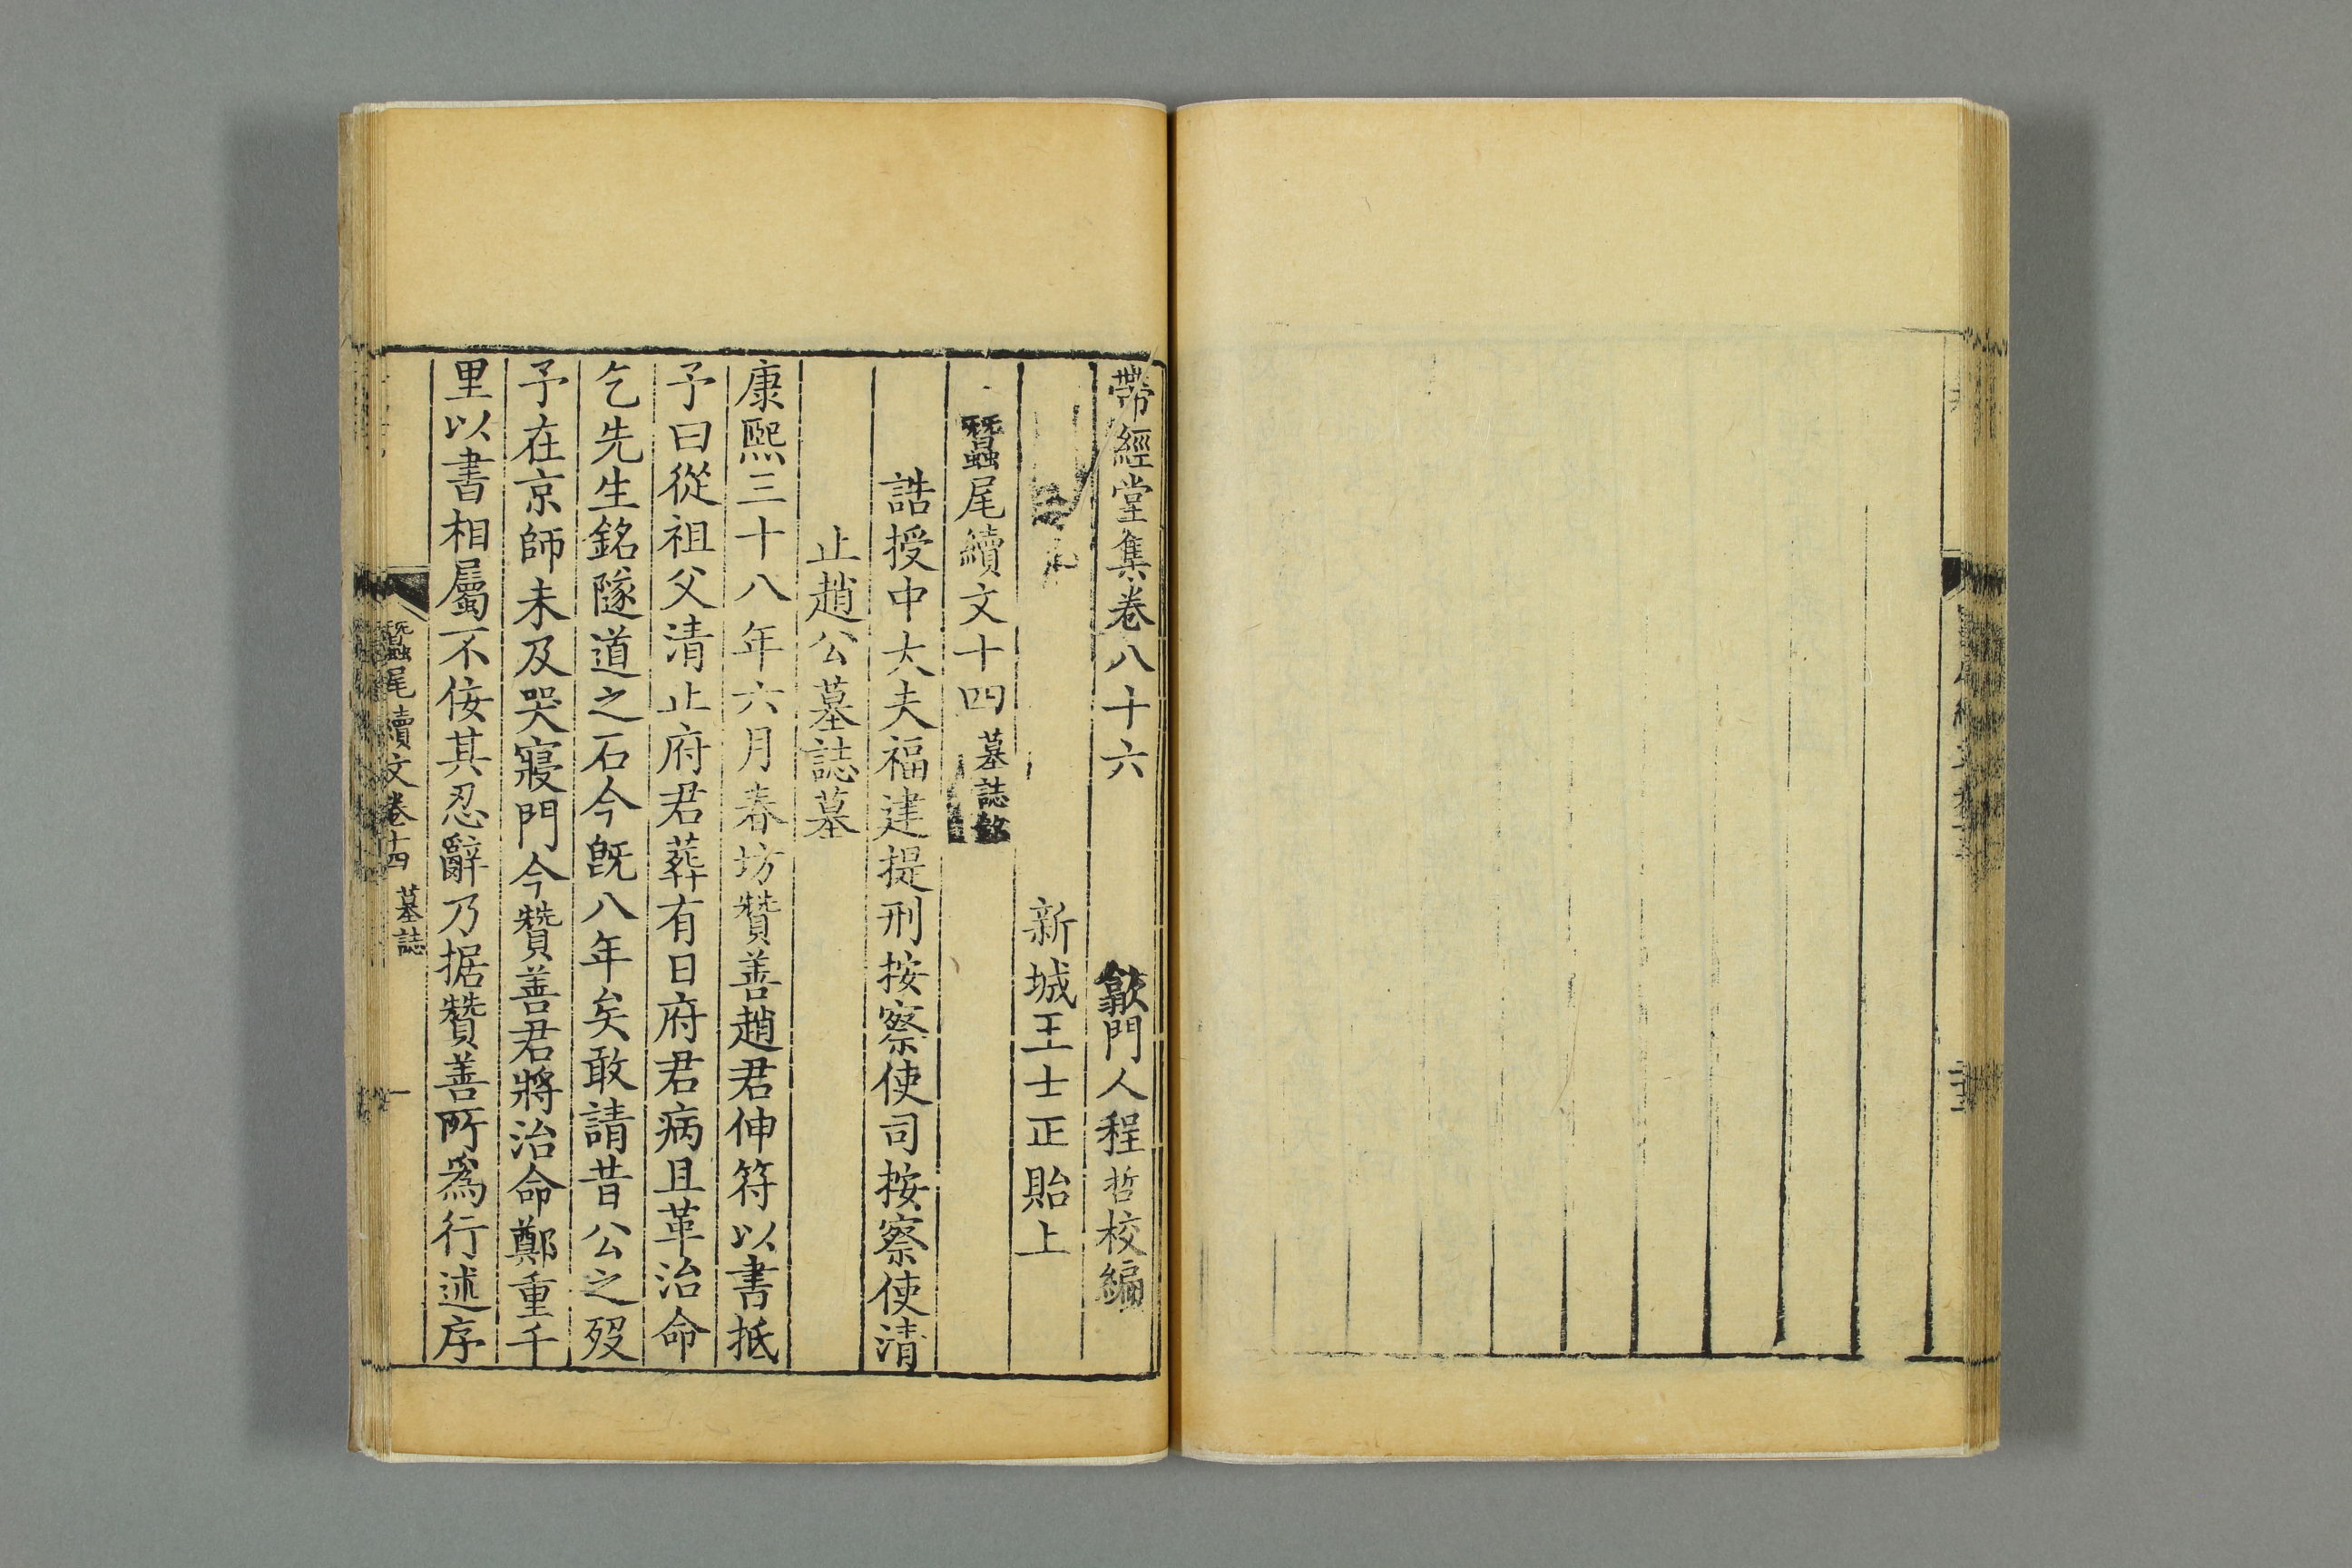 帶經堂集卷八十六　歙門人程哲校編
新城王士正貽上
蠶尾續文十四　墓誌銘
誥授中大夫福建提刑按察使司按察使清
止趙公墓誌墓
康熙三十八年六月春坊贊善趙君伸符以書抵
予曰從祖父清止府君葬有日府君病且革治命
乞先生銘隧道之石今旣八年矣敢請昔公之歿
予在京師未及哭寢門今贊善君將治命鄭重千
里以書相屬不佞其忍辭乃据贊善所爲行述序
蠶尾續文卷十四　墓誌　一